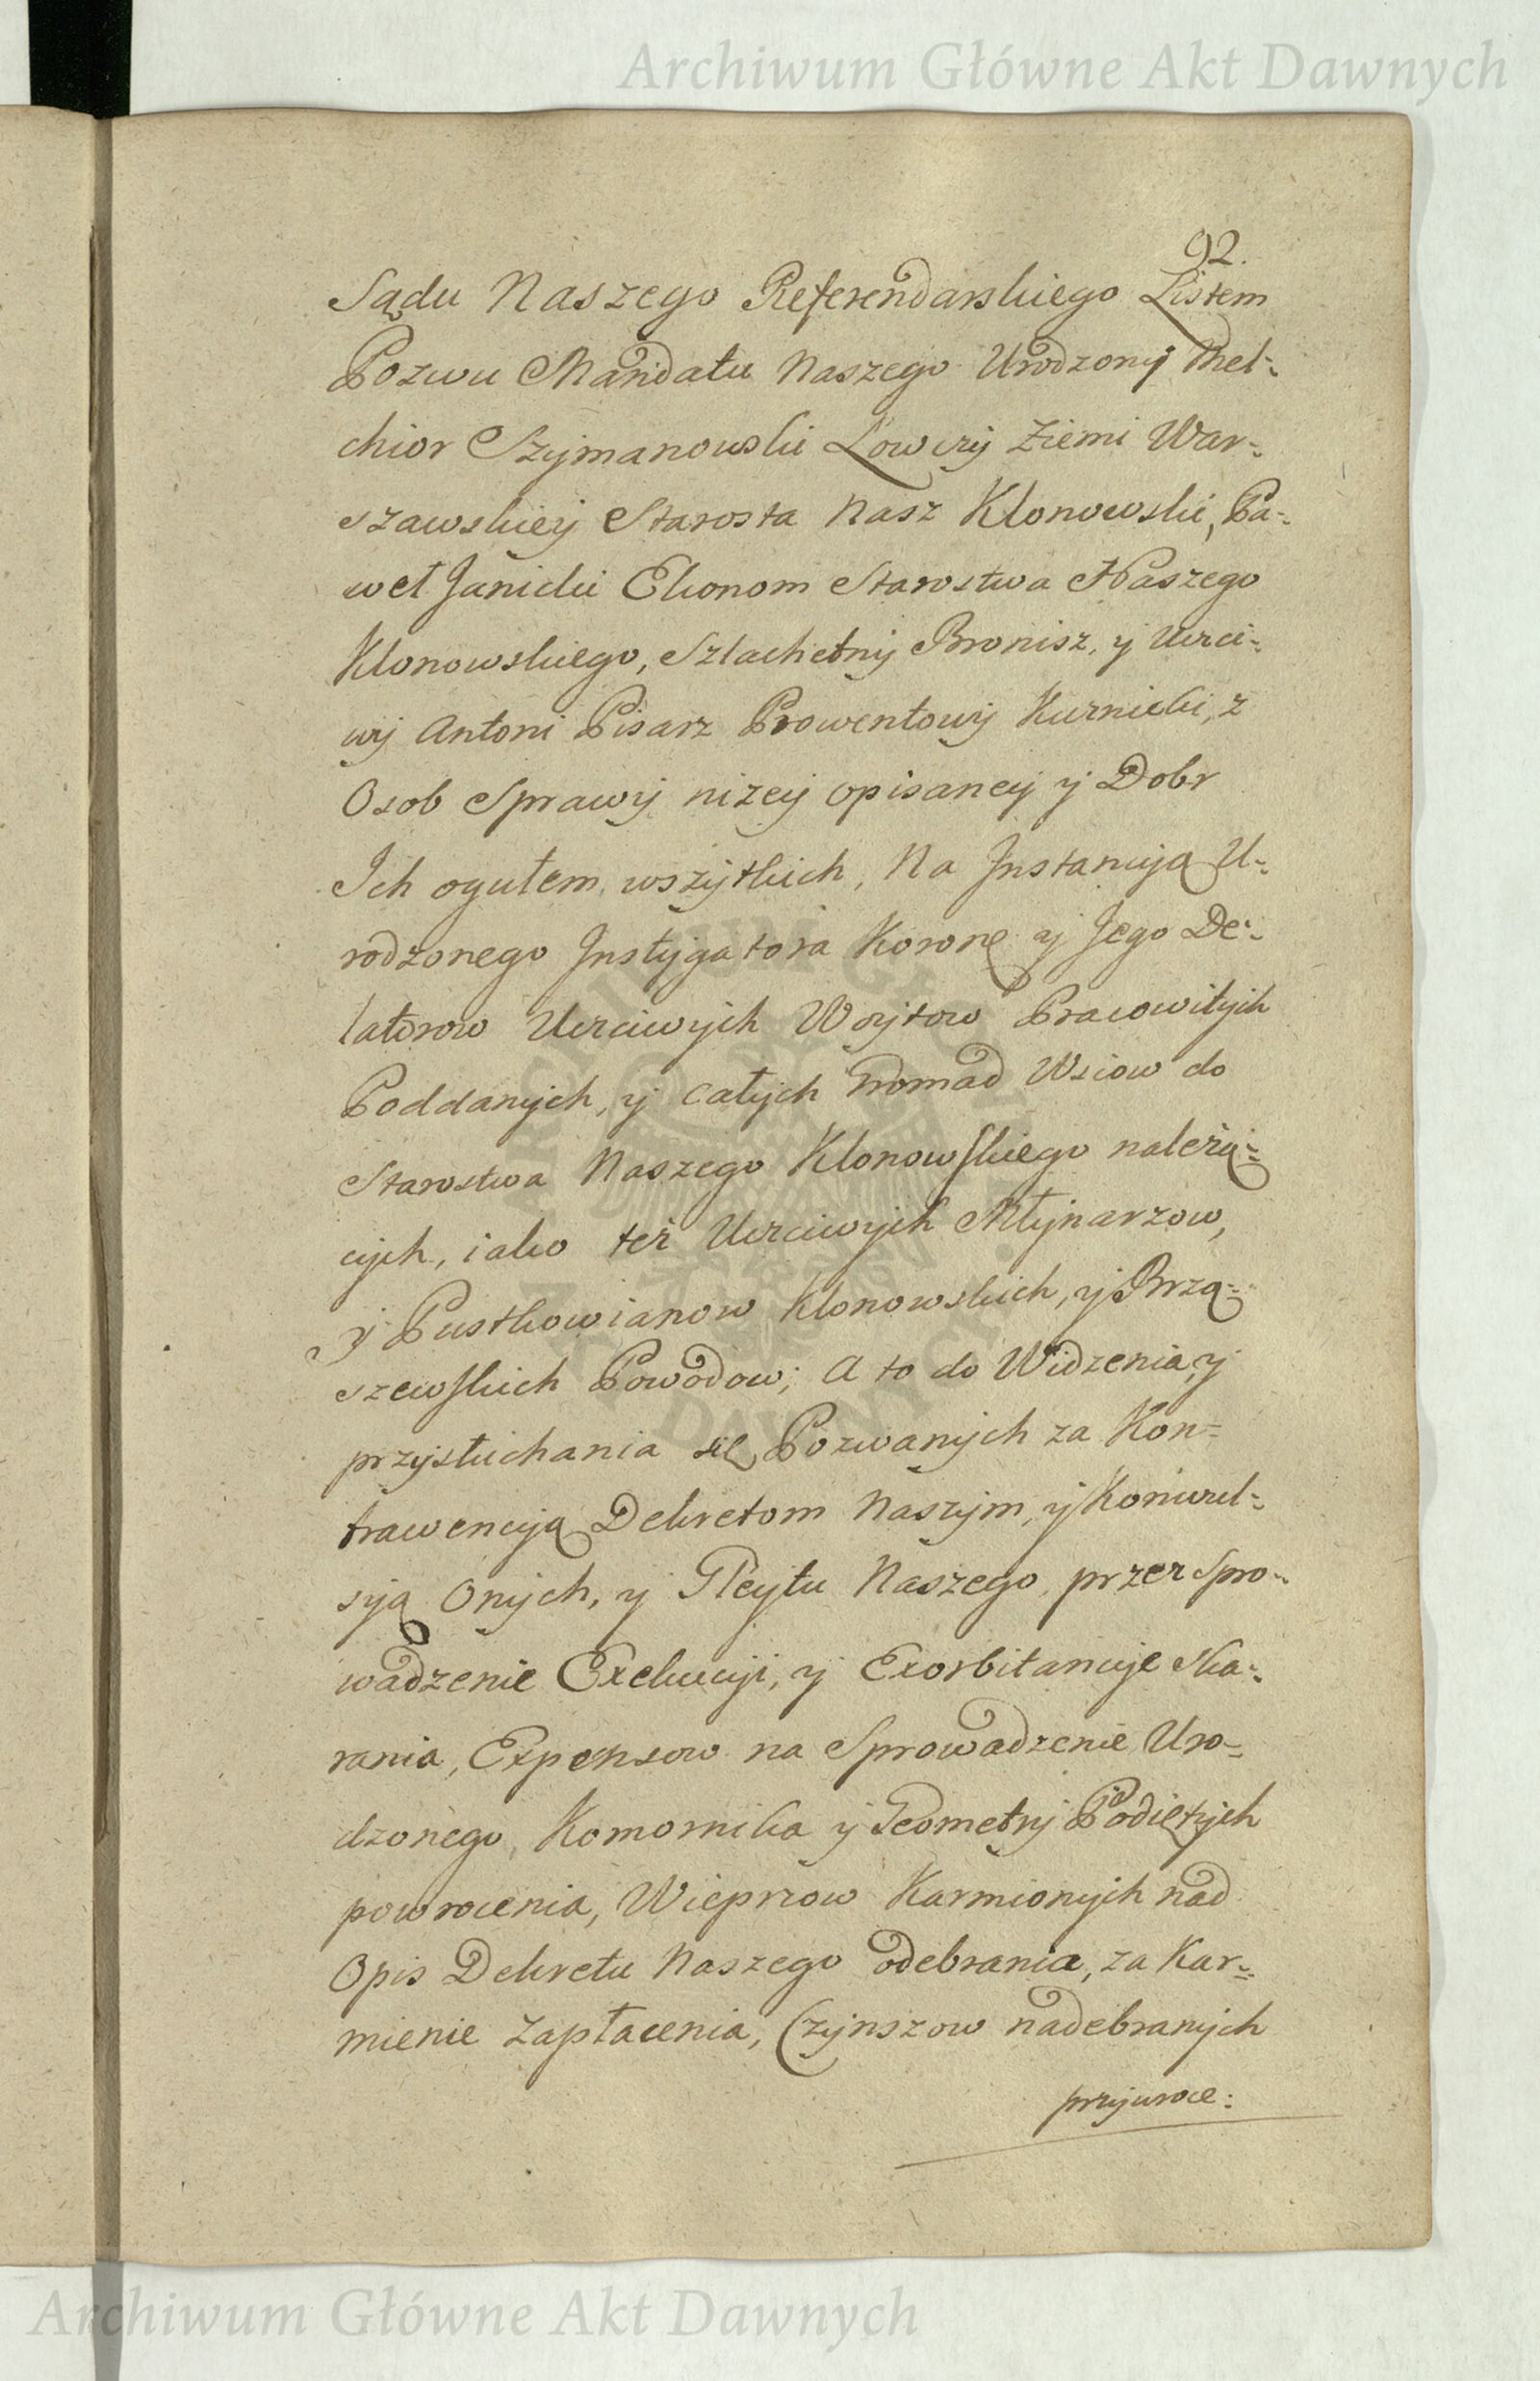 Archiwum Główne Akt Dawnych
92.
Sądu Naszego Referendarskiego Listem
Pozwu Mandatu Naszego Urodzony Mel=
chior Szymanowski Łowczy Ziemi War=
szawskiey Starosta Nasz Klonowski, Pa=
weł Janicki Ekonom Starostwa Naszego
Klonowskiego, Szlachetny Bronisz, y Uczci=
wy Antoni Pisarz Prowentowy Kurnicki, z
Osob Sprawy niżey opisaney y Dobr
Ich ogułem wszytkich, Na Instancyą U=
rodzonego Instygatora Koronę y Jego De=
latorow Uczciwych Woytow Pracowitych
Poddanych, y całych Gromad Wsiow do
Starostwa Naszego Klonowskiego należą=
cych, iako też Uczciwych Młynarzow,
y Pustkowianow Klonowskich, y Brzą=
szewskich Powodow; A to do Widzenia, y
przysłuchania się Pozwanych za Kon=
trawencyą Dekretom Naszym, y Konwul=
syą Onych, y Gleytu Naszego, przez Spro=
wadzenie Exekucyi, y Exorbitancye Ska=
rania, Expensow na Sprowadzenie Uro=
dzonego, Komornika y Geometry Podiętych
powrocenia, Wieprzow Karmionych nad
Opis Dekretu Naszego odebrania, za Kar=
mienie Zapłacenia, Czynszow nadebranych
przywroce:
Archiwum Główne Akt Dawnych